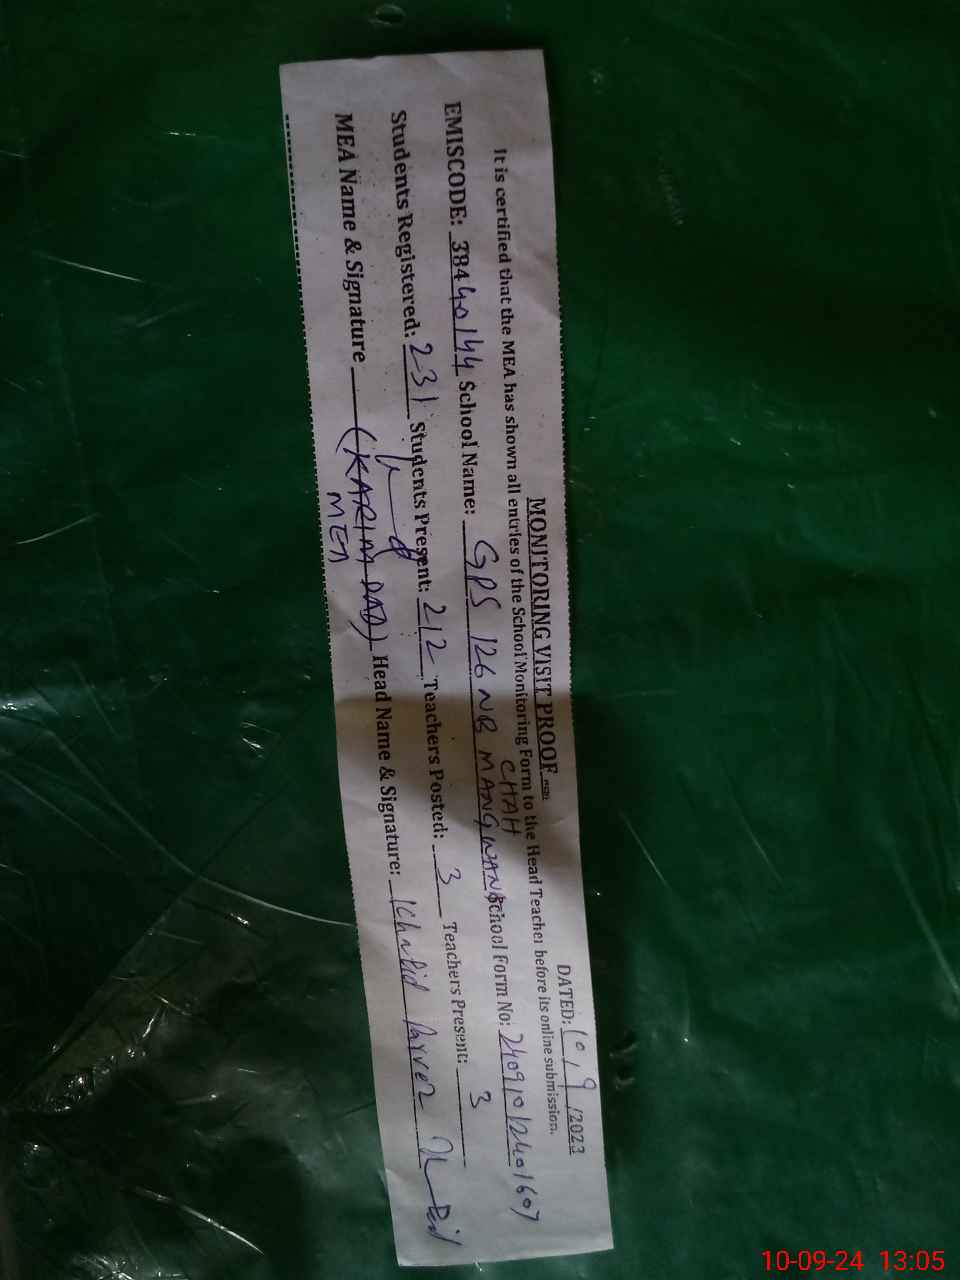 MONITORING VISIT PROOF
DATED: 10/9/2023
It is certified that the MEA has shown all entries of the School Monitoring Form to the Head Teacher before its online submission.
EMISCODE: 38440144 School Name: GPS 126 NB CHAH MANGWANA School Form No: 24091012401607
Students Registered: 231 Students Present: 212 Teachers Posted: 3 Teachers Present: 3
MEA Name & Signature (KARIM DAD) Head Name & Signature: Khalid Parvez
MEA
10-09-24 13:05